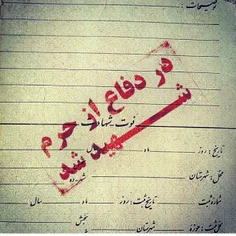 توضیحات :
در دفاع از حرم
شهید شد
فوت شهادت
تاریخ : روز ماه سال
محل : شهرستان
شماره ثبت : تاریخ ثبت : روز ماه سال
محل ثبت : حوزه شهرستان بخش